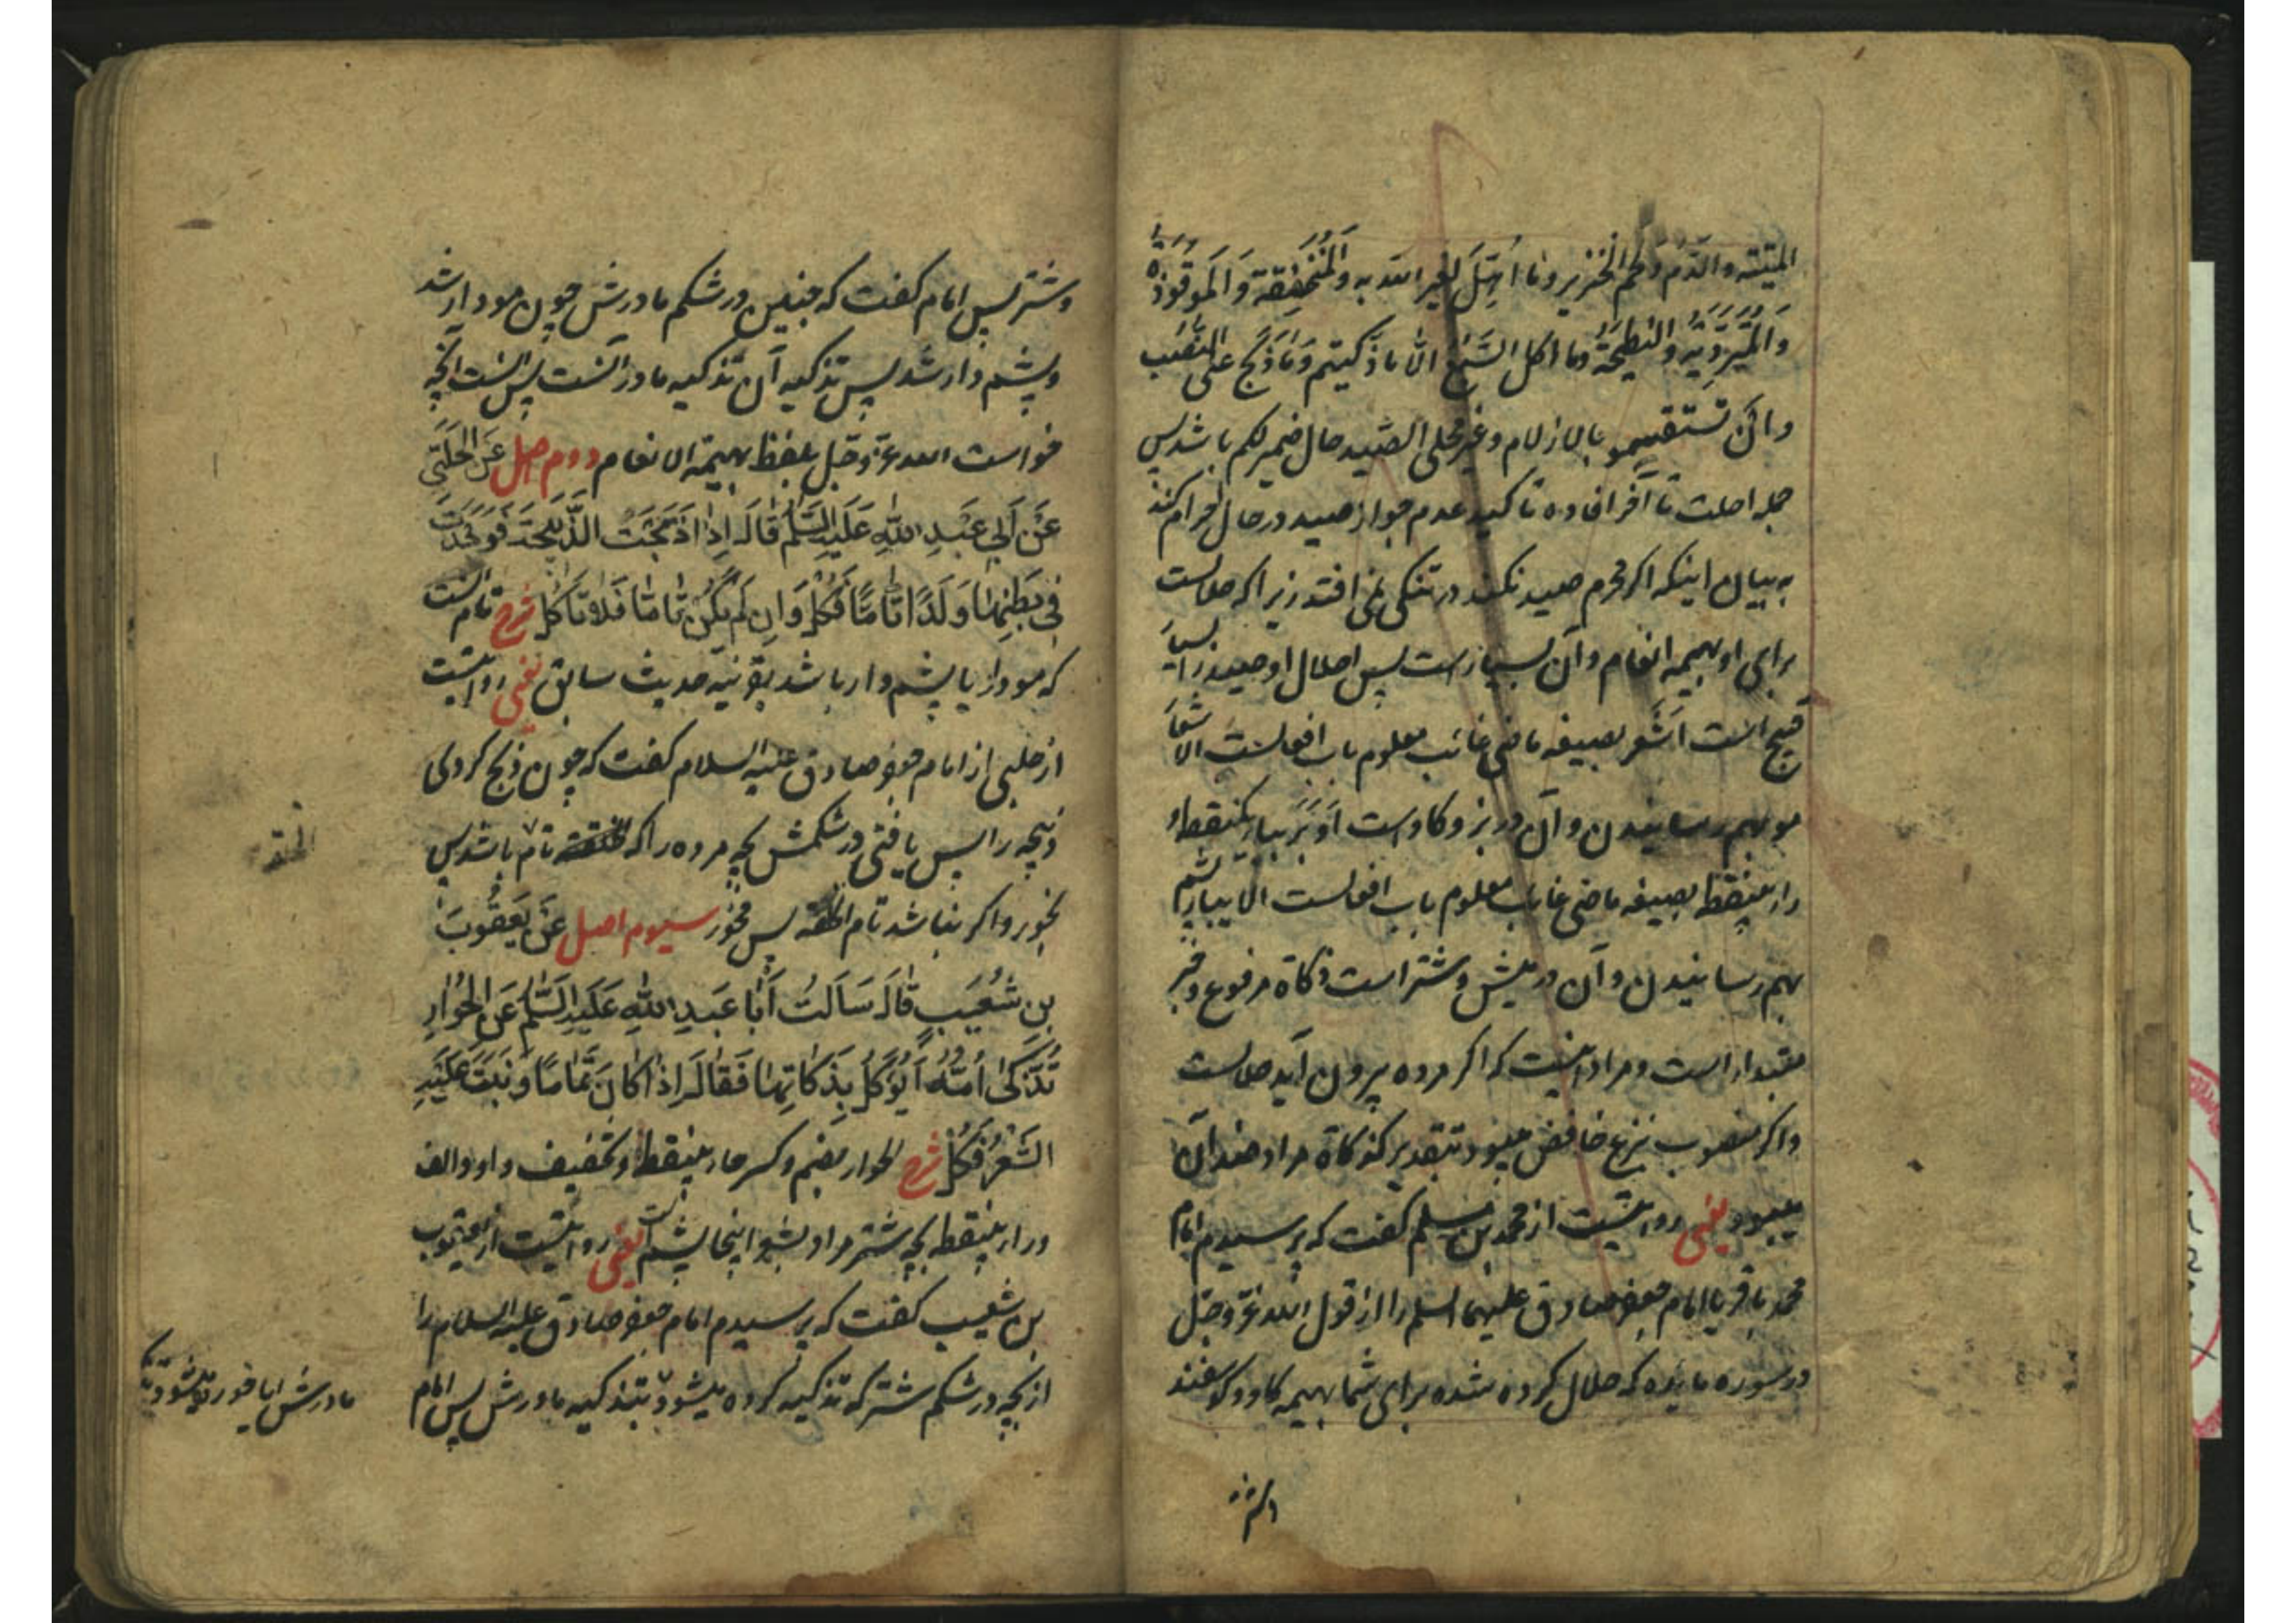 المیته والدم ولحم الخنزیر وما اهل لغیر الله به والمنخنقة والموقوذة
والمتردیة والنطیحة وما اکل السبع الا ما ذکیتم وما ذبح علی النصب
وان تستقسمو بالازلام وغیر محلی الصید حال ضمیر لکم باشد پس
جمله احلت تا آخر افاده تاکید عدم جواز صید در حال احرام کند
به بیان اینکه اکر محرم صید نکند در تنکی نمی افتد زیرا که حلالست
برای او بهیمه انعام وآن بسیار است پس احلال او صید را بسیار
قبیح است اَشْعَر بصیغه ماضی غائب معلوم باب افعالست الاشعار
مو بهم رسانیدن وآن در بز و کاو است اَوْبَرَ بباء یکنقطه و
راء بینقطه بصیغه ماضی غایب معلوم باب افعالست الایبار پشم
بهم رسانیدن وآن در میش و شتر است ذکاة مرفوع و خبر
مبتدا است ومراد اینست که اکر مرده بیرون آید حلالست
واکر منصوب بنزع خافض میبود بتقدیر کذکاة مراد ضد آن
میبود یعنی روایتست از محمد بن مسلم کفت که پرسیدم امام
محمد باقر یا امام جعفر صادق علیهما السلم را از قول الله عزّ وجلّ
در سوره مایده که حلال کرده شده برای شما بهیمه کاو و کوسفند
وشتر
وشتر پس امام کفت که جنین در شکم مادرش چون مودار شد
وپشم دار شد پس تذکیه آن تذکیه مادر آنست پس اینست آنچه
خواست الله عزّ وجلّ بلفظ بهیمة الانعام دوم اصل عَنِ الحَلَبِیِّ
عَنْ اَبی عَبْدِ اللّٰهِ عَلَیْهِ السَّلٰمُ قَالَ اِذَا ذَبَحْتَ الذَّبِیحَةَ فَوَجَدْتَ
فی بَطْنِهٰا وَلَدًا تٰامًّا فَکُلْ وَاِنْ لَمْ یَکُنْ تٰامًّا فَلٰا تَأکُلْ شرح تام آنست
که مودار یا پشم دار باشد بقرینه حدیث سابق یعنی روایتست
از حلبی از امام جعفر صادق علیه السلام کفت که چون ذبح کردی
ذبیحه را پس یافتی در شکمش بچه مرده را که تام باشد پس
بخور واکر نباشد تام الخلقه پس مخور سیوم اصل عَنْ یَعْقُوبَ
بنِ شُعَیْبٍ قٰالَ سَأَلْتُ اَبٰا عَبْدِ اللّٰهِ عَلَیْهِ السَّلٰمُ عَنِ الْحُوٰارِ
تُذَکّیٰ اُمُّهُ اَیُؤْکَلُ بِذَکٰاتِهٰا فَقٰالَ اِذٰا کٰانَ تَمٰامًا وَنَبَتَ عَلَیْهِ
الشَّعْرُ فَکُلْ شرح الحوار بضم وکسر حاء بینقطه وتخفیف واو والف
وراء بینقطه بچه شتر مراد بشعر اینجا پشم است یعنی روایتست از یعقوب
بن شعیب کفت که پرسیدم امام جعفر صادق علیه السلام را
از بچه در شکم شتر که تذکیه کرده میشود بتذکیه مادرش پس امام
مادرش ایا خورده میشود بتذکیه